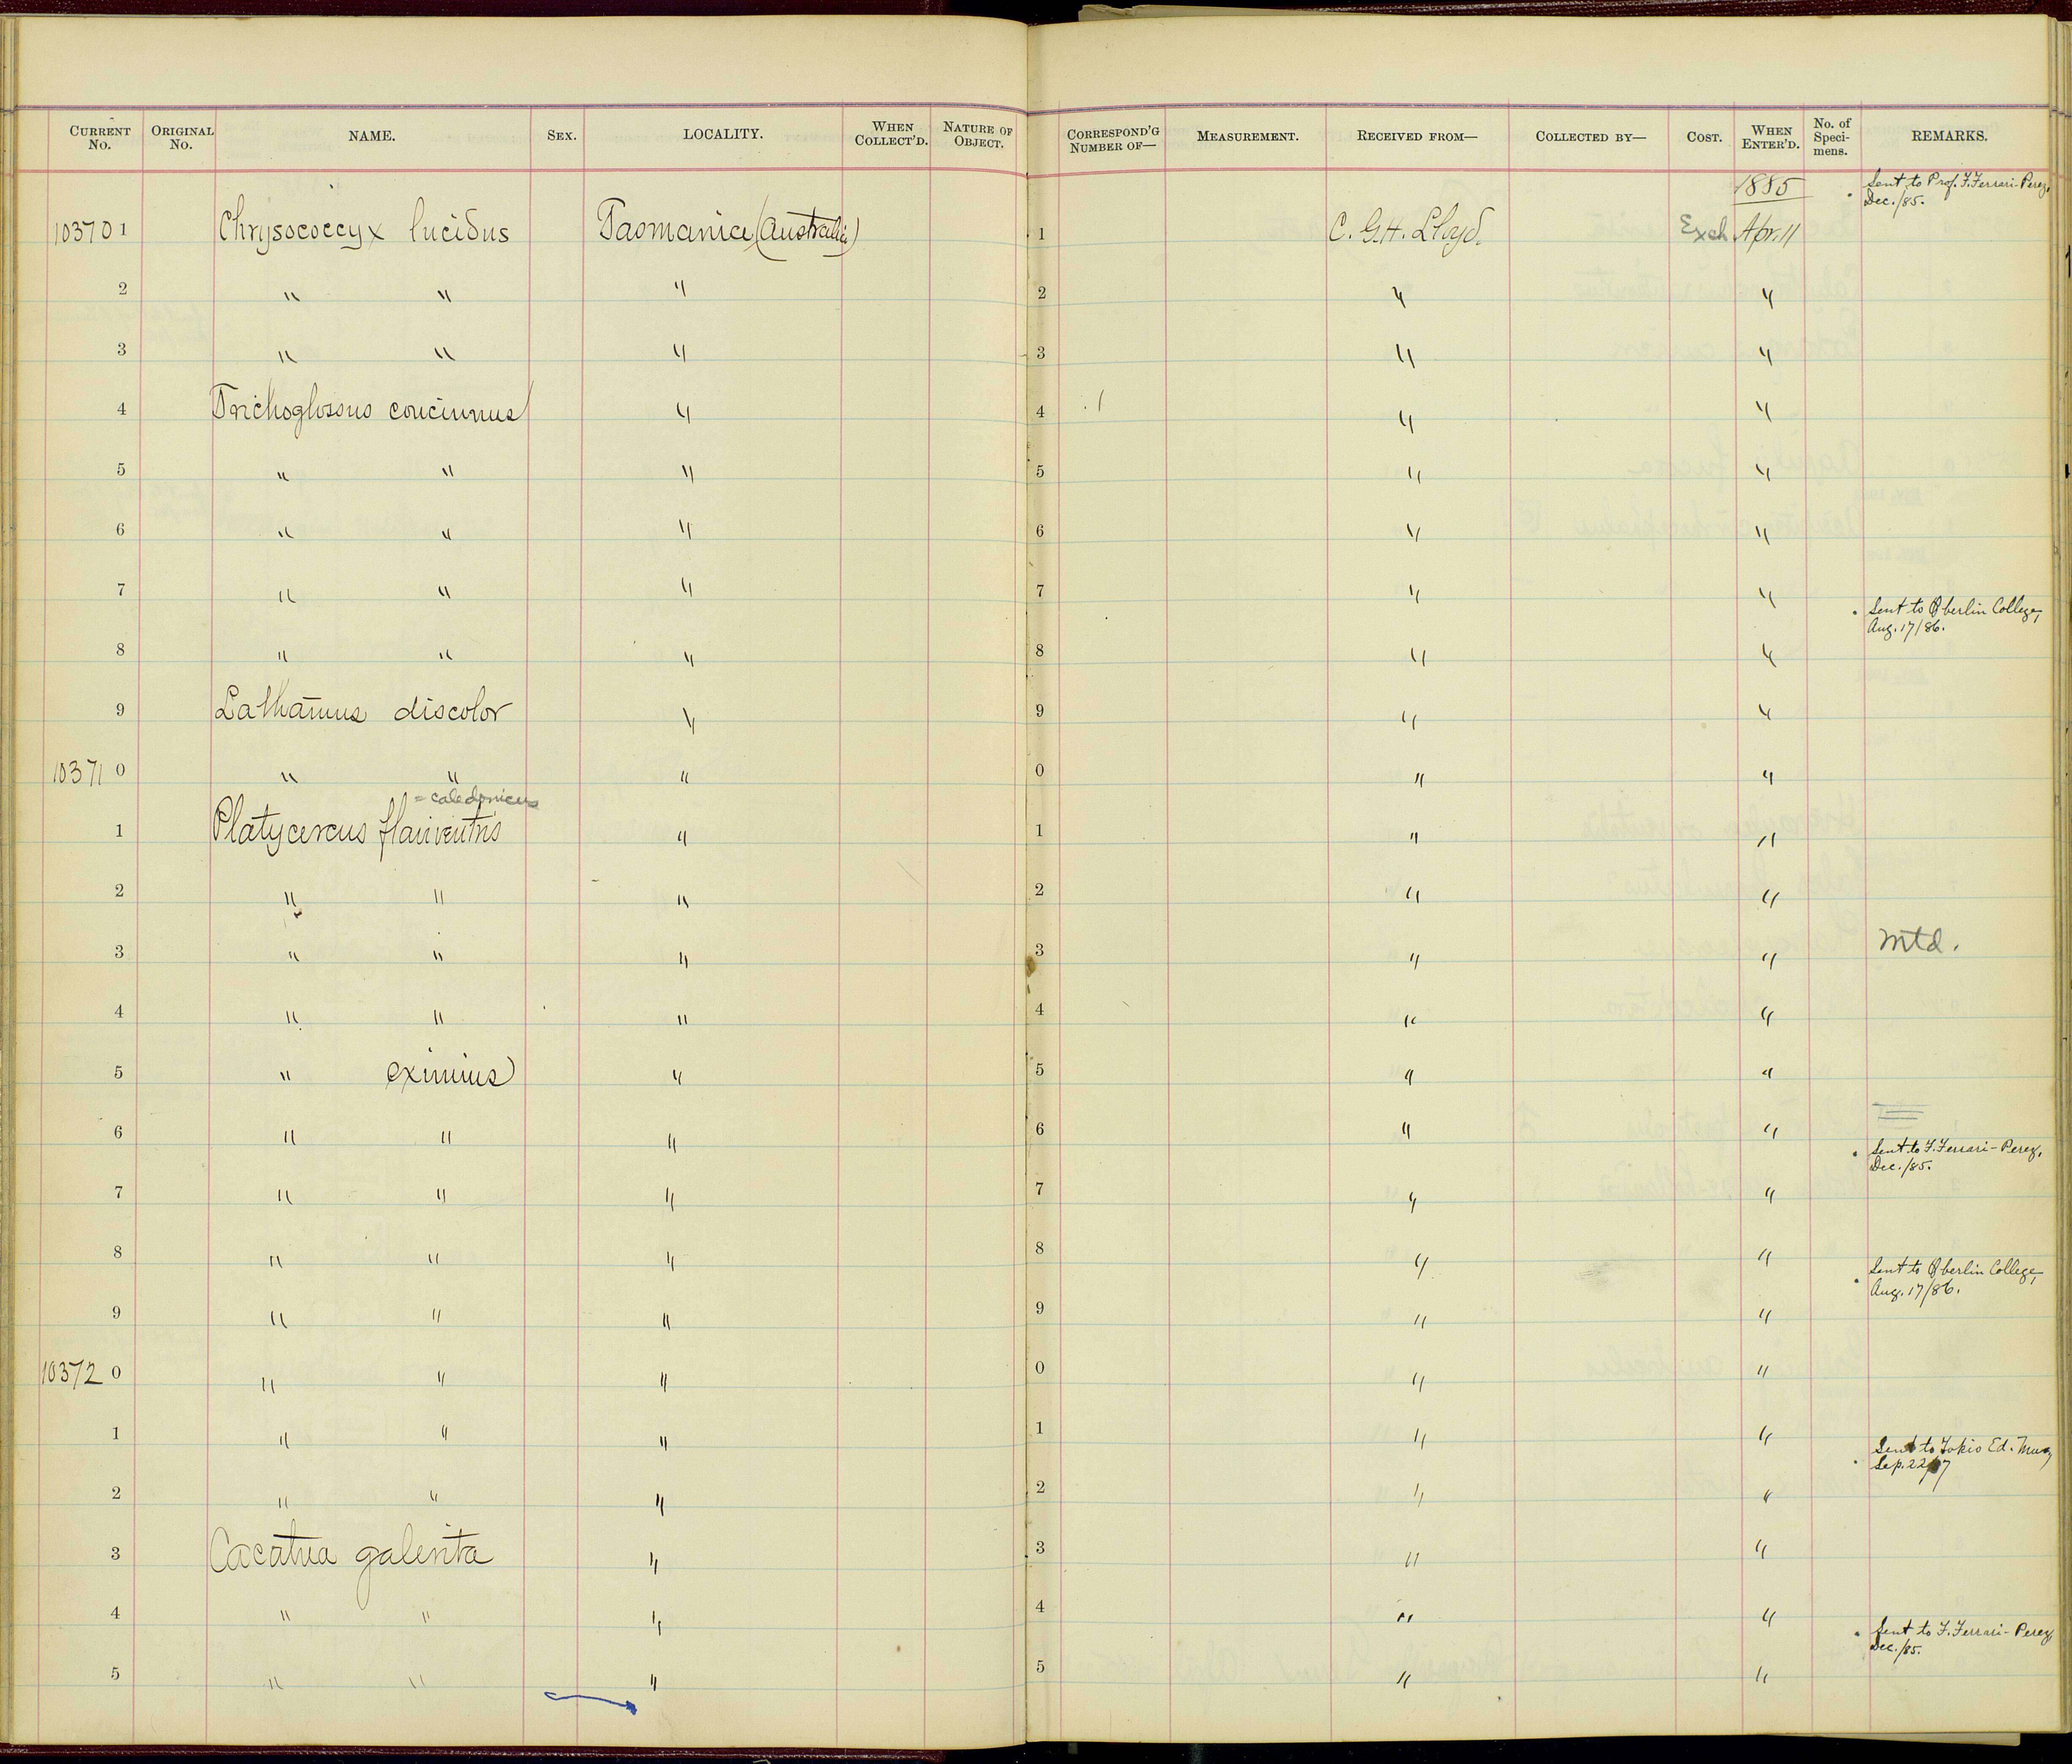 CURRENT No. ORIGINAL No. NAME. SEX. LOCALITY. WHEN COLLECT'D. NATURE OF OBJECT. CORRESPOND'G NUMBER OF— MEASUREMENT. RECEIVED FROM— COLLECTED BY— COST. WHEN ENTER'D. No. of Speci-mens. REMARKS.
1885 Sent to Prof. F. Ferrari-Perez,
Dec./85.
103701 Chrysococcyx lucidus Tasmania (Australia) 1 C. G.H. Lloyd. Exch Apr. 11
2 " " " 2 " "
3 " " " 3 " "
4 Trichoglossus concinnus " 4 " "
5 " " " 5 " "
6 " " " 6 " "
7 " " " 7 " "
Sent to Oberlin College,
Aug. 17/86.
8 " " " 8 " "
9 Lathamus discolor " 9 " "
103710 " " " 0 " "
= caledonicus
1 Platycercus flaviventris " 1 " "
2 " " " 2 " "
3 " " " 3 " " Mtd.
4 " " " 4 " "
5 " eximius " 5 " "
6 " " " 6 " "
Sent to F. Ferrari-Perez,
Dec./85.
7 " " " 7 " "
8 " " " 8 " "
Sent to Oberlin College,
Aug. 17/86.
9 " " " 9 " "
103720 " " " 0 " "
1 " " " 1 " "
Sent to Tokio Ed. Mus,
Sep. 22
2 " " " 2 " "
3 Cacatua galerita " 3 " "
4 " " " 4 " "
Sent to F. Ferrari-Perez,
Dec./85.
5 " " " 5 " "